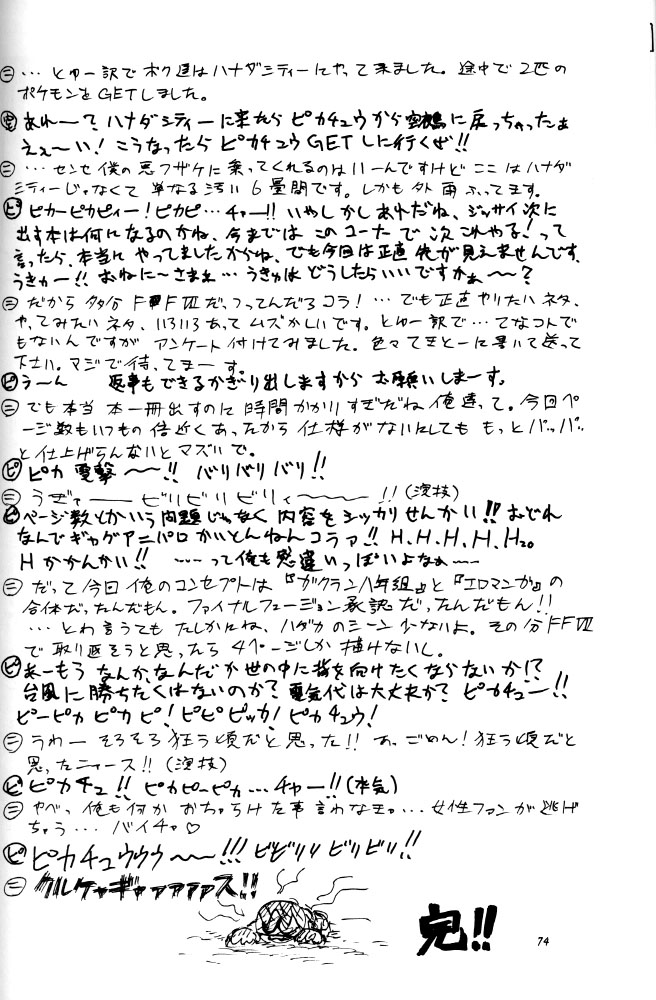 ㊁…とゆー訳でボク達はハナダシティーにやって来ました。途中で2匹の
ポケモンをGETしました。
あれ〜？ハナダシティーに来たらピカチュウから空鶴に戻っちゃったぁ
えぇ〜い！こうなったらピカチュウGETしに行くぜ!!
㊁…センセ僕の悪フザケに乗ってくれるのはいーんですけどここはハナダ
シティーじゃなくて単なる汚い6畳間です。しかも外雨ふってます。
ピ ピカーピカピィー！ピカピ…チャー!!いやしかしあれだね、ジッサイ次に
出す本は何になるのかね、今まではこのコーナで次これやる！って
言ったら、本当にやってましたからね、でも今回は正直先が見えませんです、
うきゅー!!おねに〜さまぁ…うきゅはどうしたらいいですかぁ〜〜？
㊁だから多分FFⅦだっつってんだろコラ！…でも正直やりたいネタ、
やってみたいネタ、いろいろあってムズかしいです。とゆー訳で…てなコトで
もないんですがアンケート付けてみました。色々てきとーに書いて送って
下さい。マジで待ってまーす。
ピ うーん 返事もできるかぎり出しますからお願いしまーす。
㊁でも本当本一冊出すのに時間かかりすぎだね俺達って。今回ペ
ージ数もいつもの倍近くあったから仕様がないにしてももっとパッパッ
と仕上げらんないとマズいで。
ピ ピカ電撃〜〜!!バリバリバリ!!
㊁うぎゃーービリビリビリィ〜〜〜!!(演技)
ピ ページ数とかいう問題じゃなく内容をシッカリせんかい!!おどれ
なんでギャグアニパロかいとんねんコラァ!!H、H、H、H、H₂₀
Hかかんかい!!……って俺も思違いっぽいよなぁ〜
㊁だって今回俺のコンセプトは『ガクラン八年組』と『エロマンが』の
合体だったんだもん。ファイナルフュージョン承認だったんだもん!!
…とわ言うてもたしかにね、ハダカのシーン少ないよ。その分FFⅦ
で取り返そうと思ったら4ページしか描けないし。
ピ あーもうなんかなんだか世の中に背を向けたくならないか!?
台風に勝ちたくはないのか？電気代は大丈夫か？ピカチュー!!
ピーピカピカピ！ピピピッカ！ピカチュウ！
㊁うわーそろそろ狂う頃だと思った!!あっごめん！狂う頃だと
思ったニャース!!(演技)
ピ ピカチュ!!ピカピーピカ…チャー!!(本気)
㊁やべっ俺も何かおちゃらけた事言わなきゃ…女性ファンが逃げ
ちゃう…バイチャ♡
ピ ピカチュウウウ〜〜!!!ビビリリビリビリ!!
㊁グルケャギャァァァァス!!
完!!
74